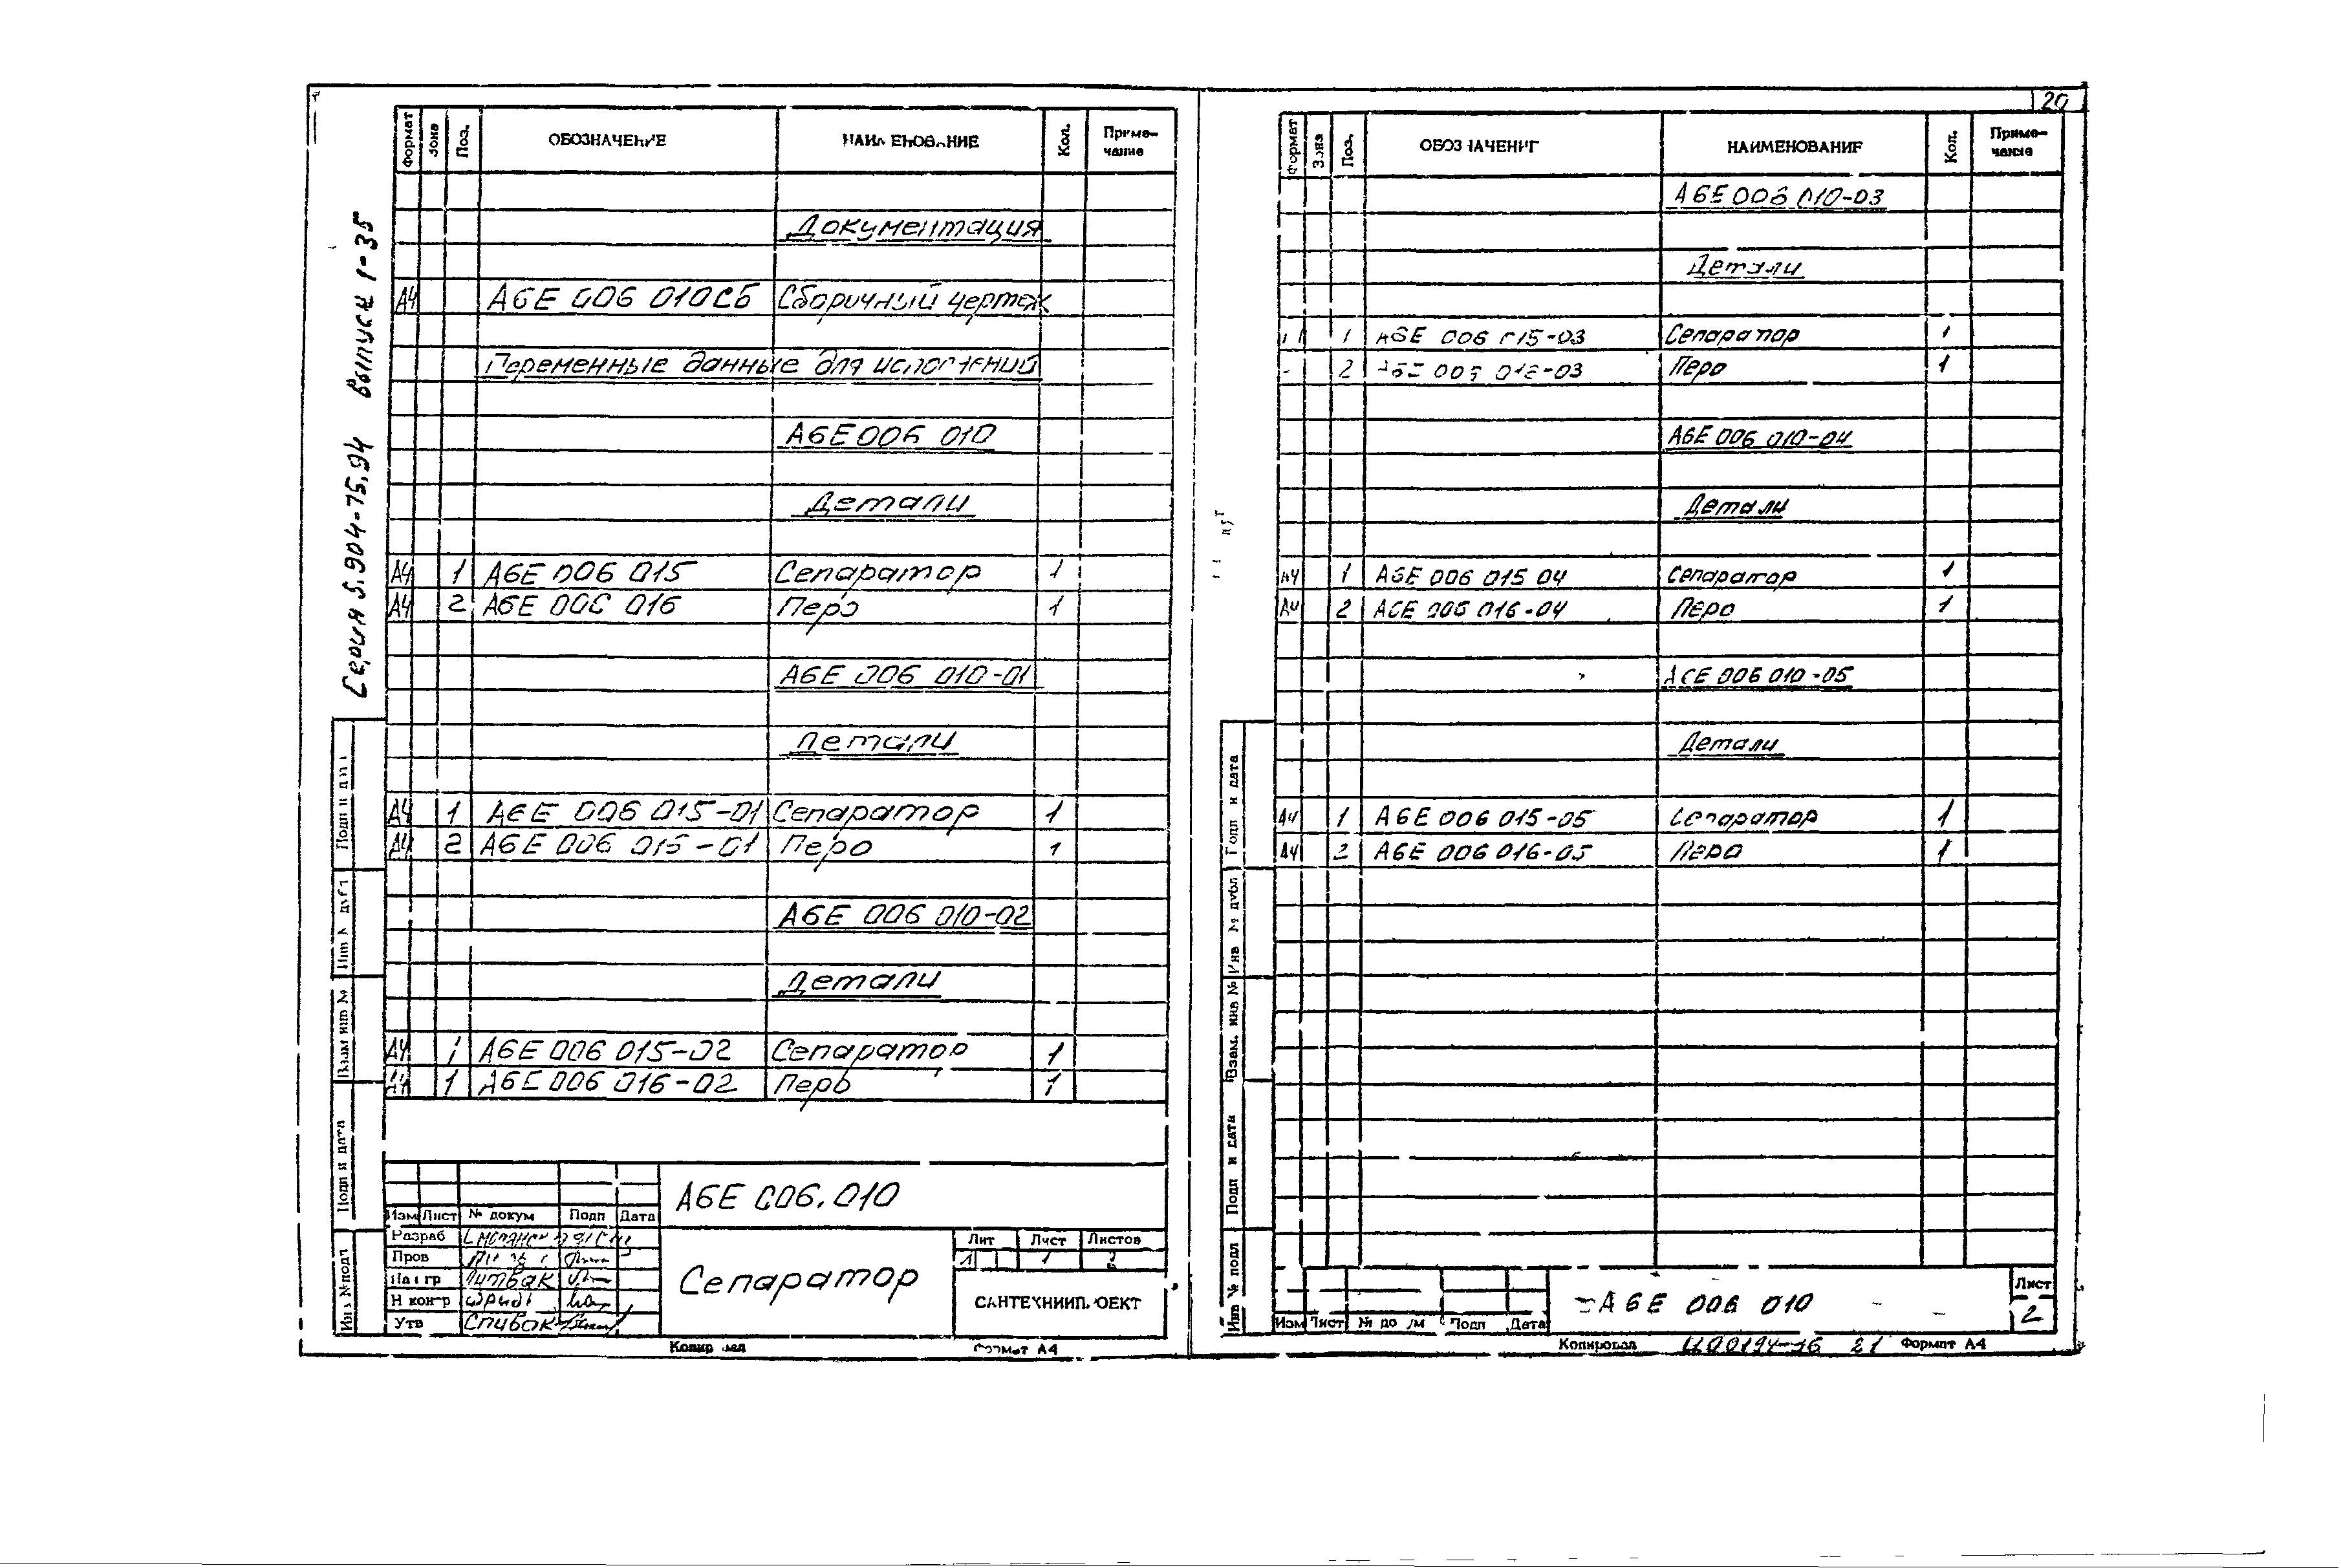 20
Серия 5.904-75.94 Выпуск 1-35
Формат Зона Поз. ОБОЗНАЧЕНИЕ НАИМЕНОВАНИЕ Кол. Приме-чание
Документация
А4 А6Е 006 010СБ Сборичный чертеж
Переменные данные для исполнений
А6Е 006 010
Детали
А4 1 А6Е 006 015 Сепаратор 1
А4 2 А6Е 006 016 Перо 1
А6Е 006 010-01
Детали
А4 1 А6Е 006 015-01 Сепаратор 1
А4 2 А6Е 006 015-01 Перо 1
А6Е 006 010-02
Детали
А4 1 А6Е 006 015-02 Сепаратор 1
А4 1 А6Е 006 016-02 Перо 1
А6Е 006.010
Изм Лист № докум Подп Дата
Разраб
Пров
Н контр
Утв Спивак
Сепаратор
Лит Лист Листов
1 2
САНТЕХНИИПРОЕКТ
Копировал Формат А4
Подп и дата
Инв № дубл
Взам инв №
Подп и дата
Инв № подл
Формат Зона Поз. ОБОЗНАЧЕНИЕ НАИМЕНОВАНИЕ Кол. Приме-чание
А6Е 006 010-03
Детали
1 А6Е 006 015-03 Сепаратор 1
2 А6Е 006 016-03 Перо 1
А6Е 006 010-04
Детали
А4 1 А6Е 006 015 04 Сепаратор 1
А4 2 А6Е 006 016-04 Перо 1
А6Е 006 010-05
Детали
А4 1 А6Е 006 015-05 Сепаратор 1
А4 2 А6Е 006 016-05 Перо 1
Подп и дата
Инв № дубл
Взам. инв №
Подп и дата
Инв № подл
Изм Лист № докум Подп Дата
А6Е 006 010
Лист
2
Копировал Ц00194-16 21 Формат А4